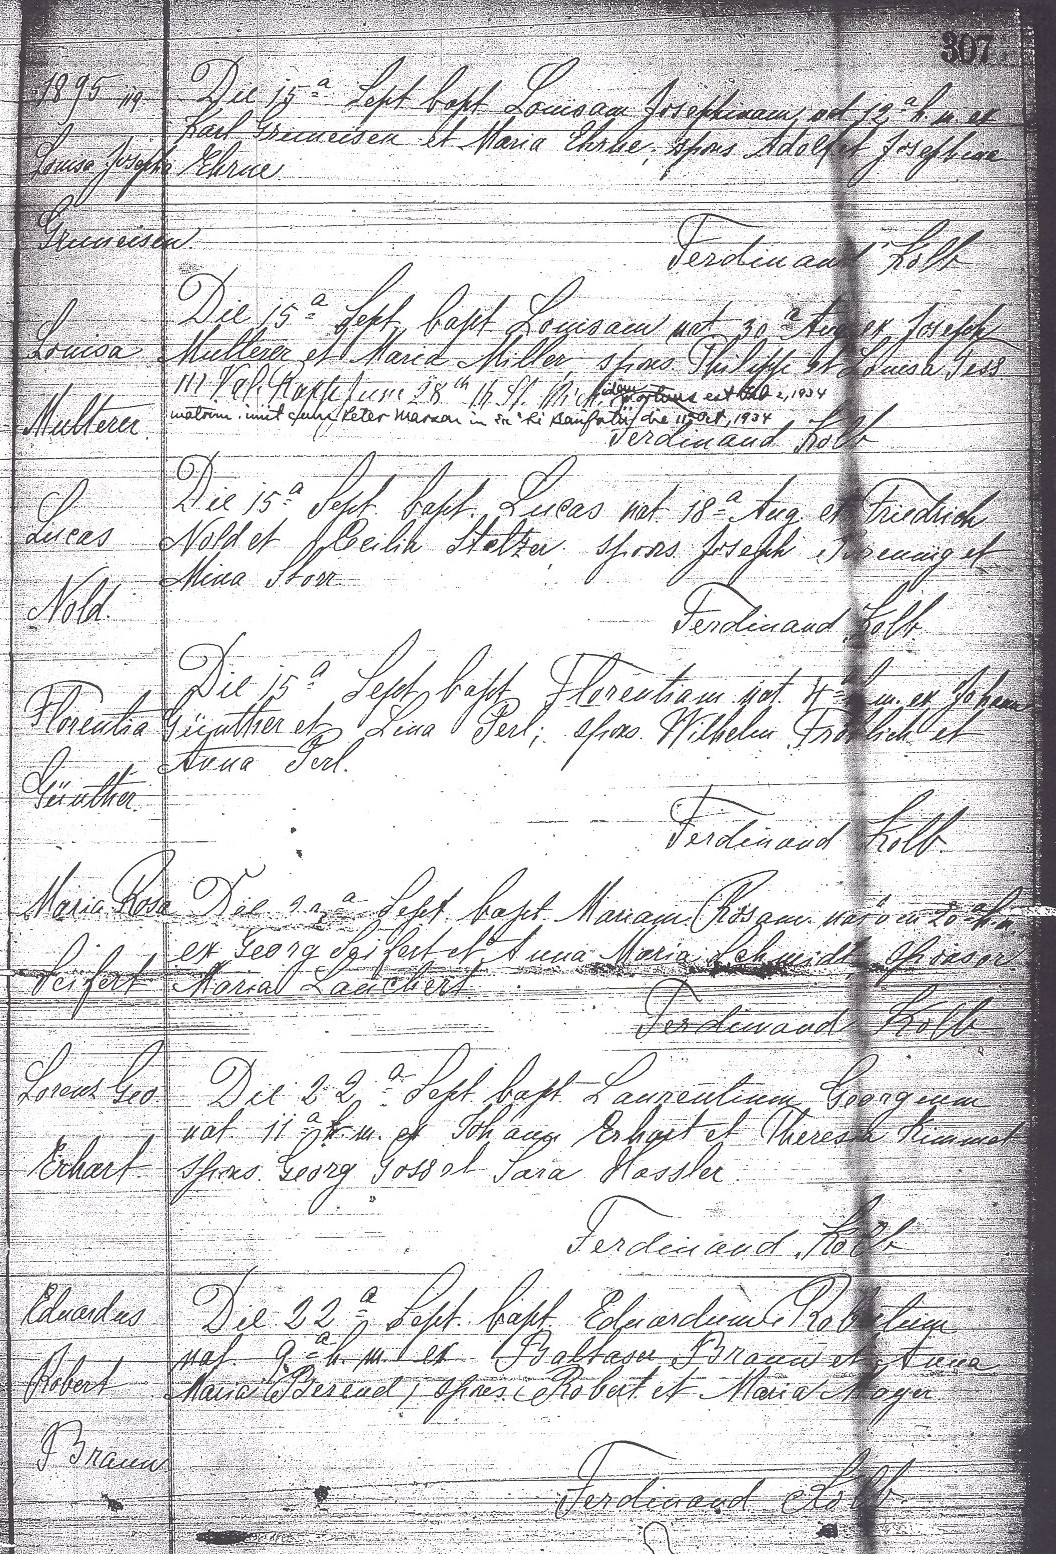 307
1895
Die 15ª Sept bapt Louisam Josephinam, nat 12ª h. m. ex
Louisa Josepha
Karl Gruneisen et Maria Ehrne; spons Adolf et Josephine
Ehrne
Gruneisen
Ferdinand Kolb
Louisa
Die 15ª Sept bapt Louisam nat 30ª Aug ex Joseph
Multerer et Maria Miller, spons Philipp et Louisa Jess
III Val. June 28th St.
2, 1934
matrim. cum Peter in die 11 Oct, 1934
Multerer.
Ferdinand Kolb
Lucas
Die 15ª Sept. bapt. Lucas nat 18ª Aug ex Friedrich
Nold et Cecilia Stelzer. spons. Joseph Brenning et
Mina Storr.
Nold.
Ferdinand Kolb.
Florentia
Die 15ª Sept bapt Florentiam nat. 4ª h. m. ex Johann
Günther et Lina Perl; spons. Wilhelm Frohlich et
Anna Perl.
Günther.
Ferdinand Kolb.
Maria Rosa
Die Sept bapt Mariam Rosam 20ª h. m.
ex Georg Seifert et Anna Maria Schmidt, sponsor
Seifert
Maria Lanchert.
Ferdinand Kolb
Lorenz Geo.
Die 22ª Sept bapt Laurentium Georgium
nat. 11ª h. m. ex Johann Erhart et Theresia Kimmet
Erhart
spons. Georg Goss et Sara Hassler.
Ferdinand Kolb
Eduardus
Die 22ª Sept. bapt. Eduardum Robertum
nat. 9ª h. m. ex Baltasar Braun et Anna
Robert
Maria Berend; spons. Robert et Maria Mayer
Braun
Ferdinand Kolb.